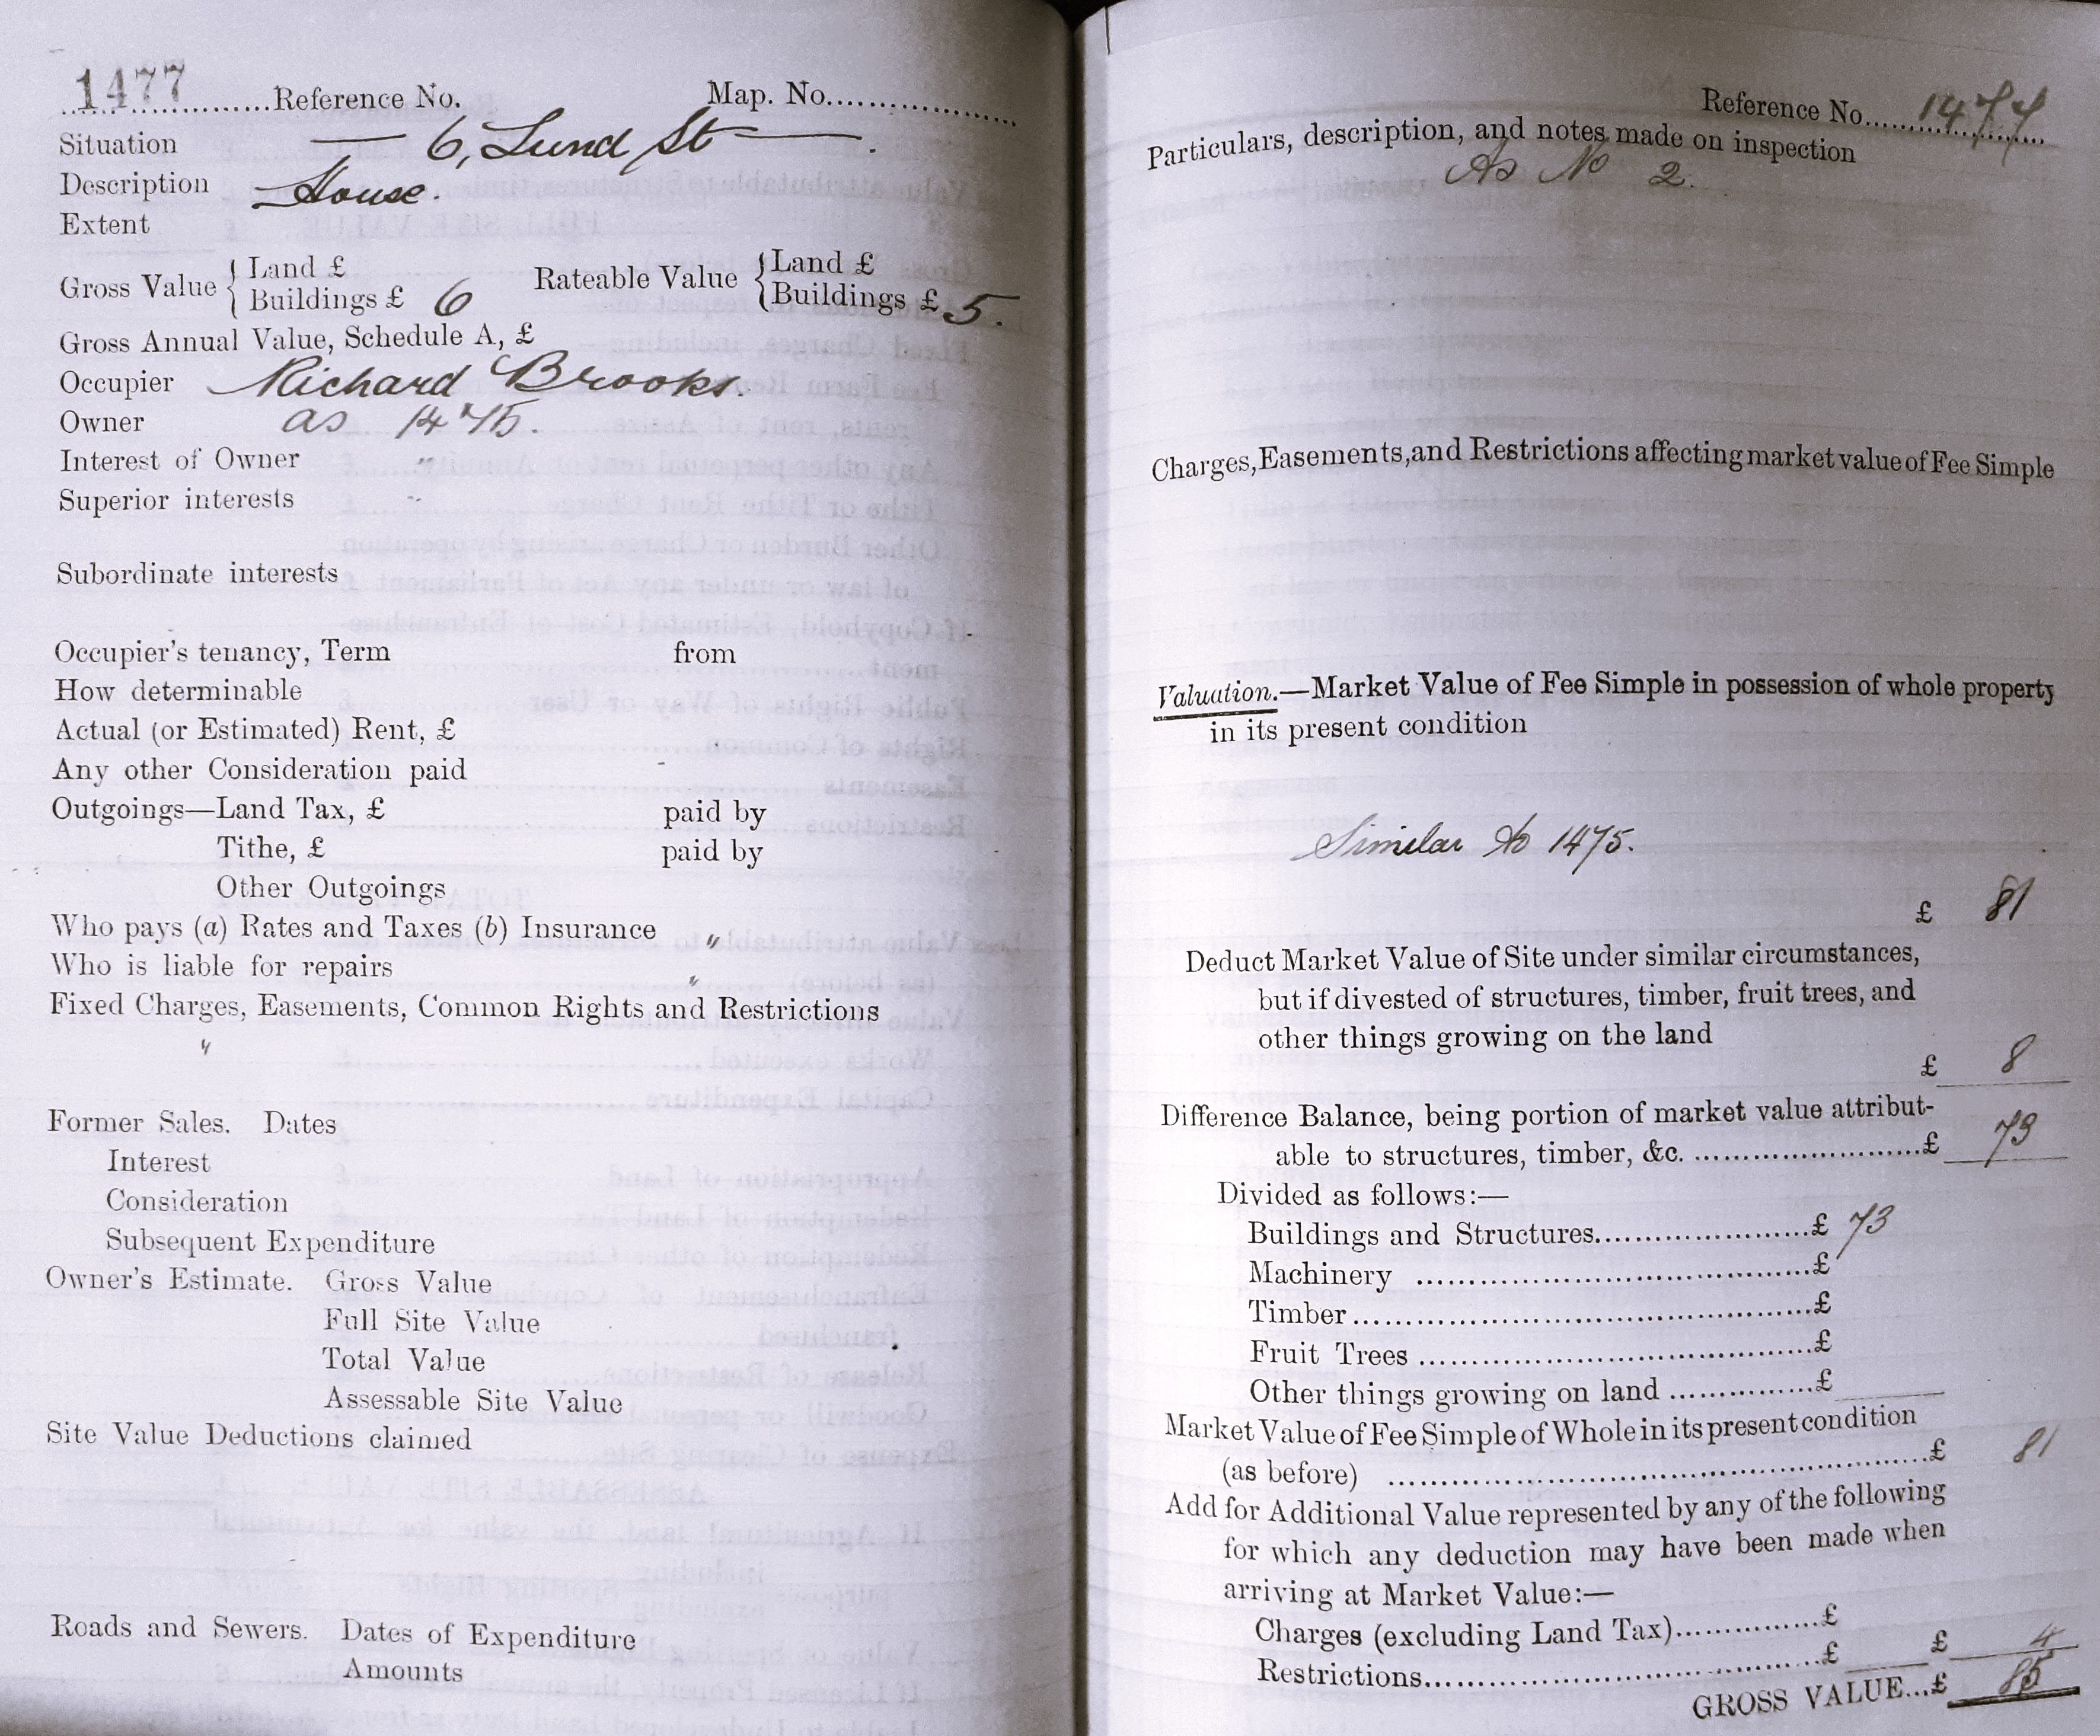 1477 Reference No. Map. No.
Situation 6, Lund St
Description House.
Extent
Gross Value { Land £
Buildings £ 6
Rateable Value { Land £
Buildings £ 5.
Gross Annual Value, Schedule A, £
Occupier Richard Brooks.
Owner as 1475.
Interest of Owner "
Superior interests "
Subordinate interests
Occupier's tenancy, Term from
How determinable
Actual (or Estimated) Rent, £
Any other Consideration paid
Outgoings—Land Tax, £ paid by
Tithe, £ paid by
Other Outgoings
Who pays (a) Rates and Taxes (b) Insurance "
Who is liable for repairs "
Fixed Charges, Easements, Common Rights and Restrictions
"
Former Sales. Dates
Interest
Consideration
Subsequent Expenditure
Owner's Estimate. Gross Value
Full Site Value
Total Value
Assessable Site Value
Site Value Deductions claimed
Roads and Sewers. Dates of Expenditure
Amounts
Reference No. 1477
Particulars, description, and notes made on inspection
As No 2.
Charges, Easements, and Restrictions affecting market value of Fee Simple
Valuation.—Market Value of Fee Simple in possession of whole property
in its present condition
Similar to 1475.
£ 81
Deduct Market Value of Site under similar circumstances,
but if divested of structures, timber, fruit trees, and
other things growing on the land
£ 8
Difference Balance, being portion of market value attribut-
able to structures, timber, &c. £ 73
Divided as follows:—
Buildings and Structures £ 73
Machinery £
Timber £
Fruit Trees £
Other things growing on land £
Market Value of Fee Simple of Whole in its present condition
(as before) £ 81
Add for Additional Value represented by any of the following
for which any deduction may have been made when
arriving at Market Value:—
Charges (excluding Land Tax) £
Restrictions £ £ 4
GROSS VALUE...£ 85